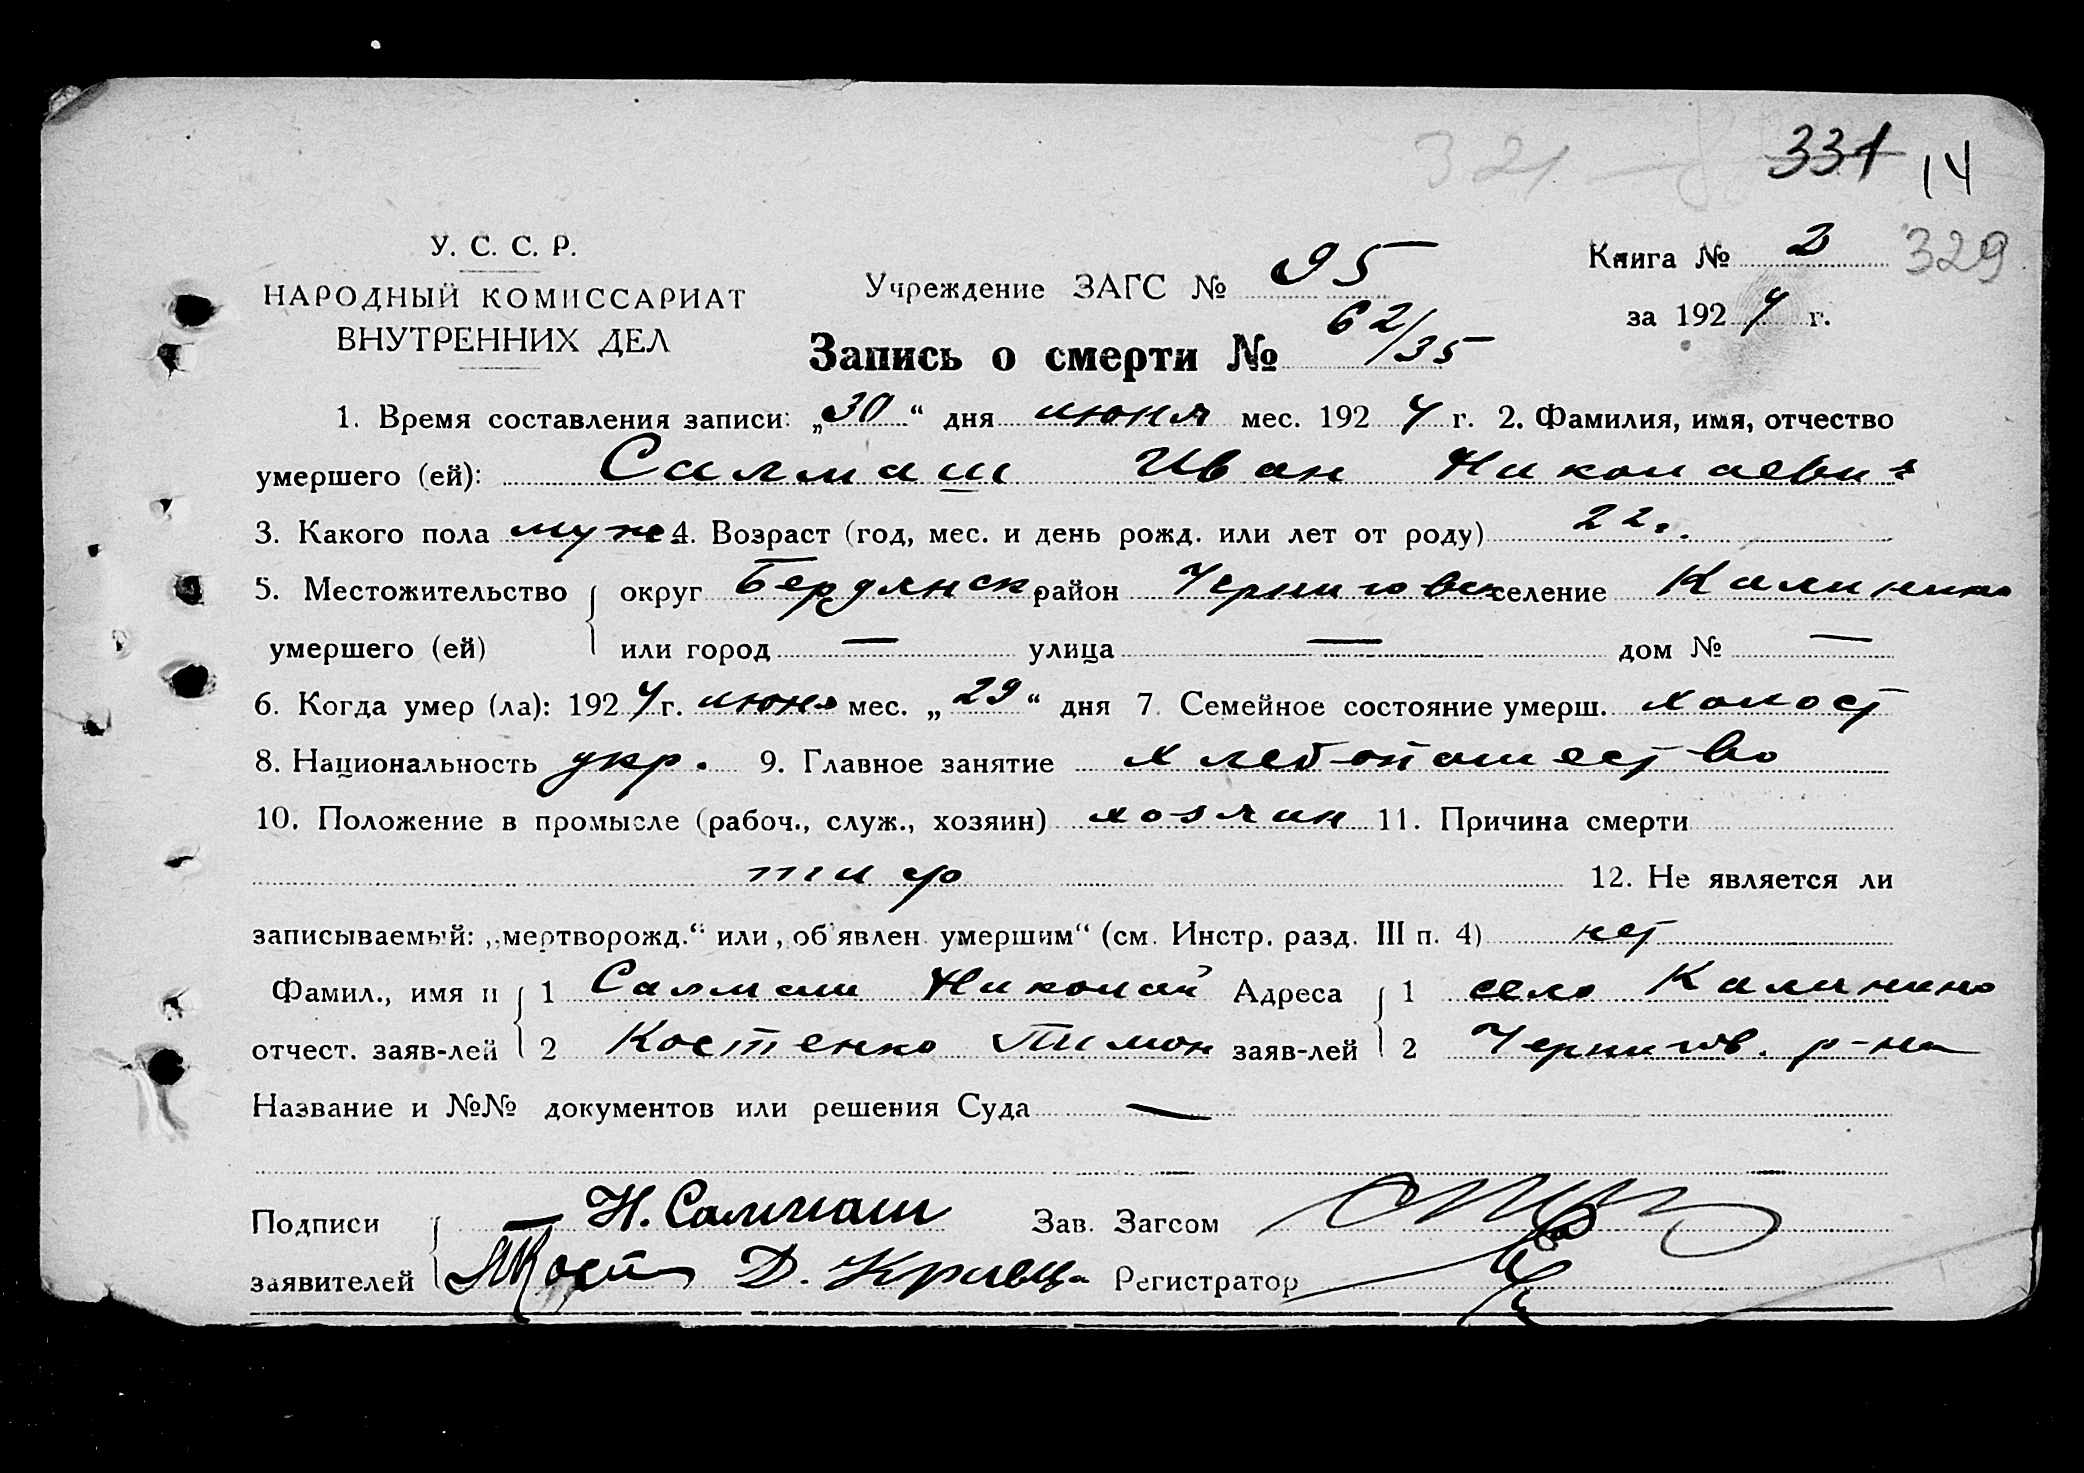 321
331 14
У. С. С. Р.
НАРОДНЫЙ КОМИССАРИАТ
ВНУТРЕННИХ ДЕЛ
Учреждение ЗАГС № 95
Книга № 2 329
за 1924 г.
Запись о смерти № 62/35
1. Время составления записи: „30“ дня июня мес. 1924 г. 2. Фамилия, имя, отчество
умершего (ей): Салмаш Иван Николаевич
3. Какого пола муж. 4. Возраст (год, мес. и день рожд. или лет от роду) 22.
5. Местожительство округ Бердянск район Черниговск селение Калинино
умершего (ей) или город — улица — дом № —
6. Когда умер (ла): 1924 г. июня мес. „29“ дня 7. Семейное состояние умерш. холост
8. Национальность укр. 9. Главное занятие хлебопашество
10. Положение в промысле (рабоч., служ., хозяин) хозяин 11. Причина смерти
тиф 12. Не является ли
записываемый: „мертворожд.“ или „об'явлен умершим“ (см. Инстр. разд. III п. 4) нет
Фамил., имя и 1 Салмаш Николай Адреса 1 село Калинино
отчест. заяв-лей 2 Костенко Тимон заяв-лей 2 Чернигов. р-на
Название и №№ документов или решения Суда —
Подписи — Н. Салмаш Зав. Загсом
заявителей Д. Кривца Регистратор